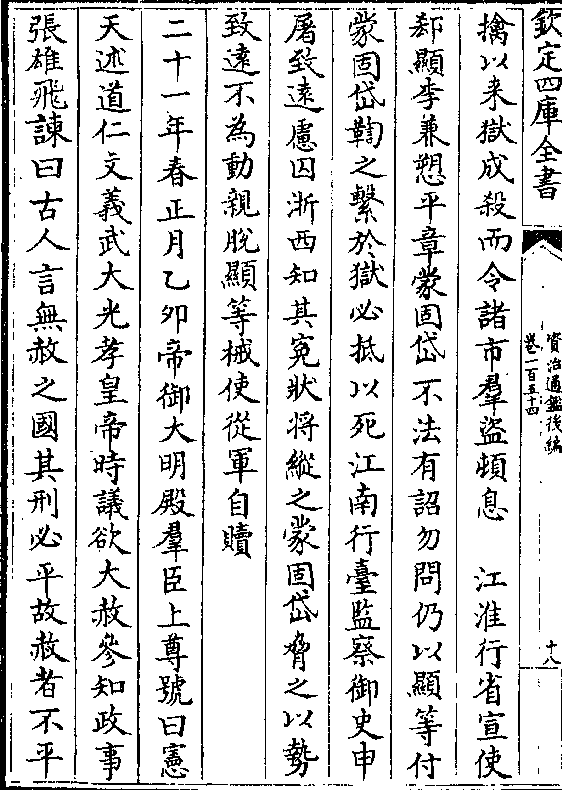 欽定四庫全書
資治通鑑後編
卷一百五十四
十八
擒以来獄成殺而令諸市羣盜頓息　江淮行省宣使
郄顯李兼愬平章蒙固岱不法有詔勿問仍以顯等付
蒙固岱鞫之繫於獄必抵以死江南行臺監察御史申
屠致遠慮囚浙西知其寃狀将縱之蒙固岱脅之以勢
致遠不為動親脫顯等械使從軍自贖
二十一年春正月乙卯帝御大明殿羣臣上尊號曰憲
天述道仁文義武大光孝皇帝時議欲大赦參知政事
張雄飛諫曰古人言無赦之國其刑必平故赦者不平